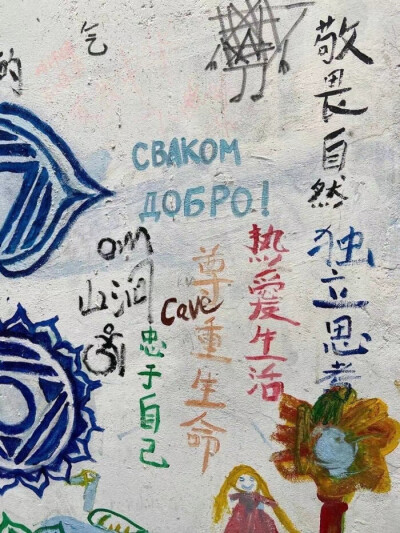 气
的
敬畏自然
独立思考
СВАКОМ
ДОБРО!
热爱生活
尊重生命
om
山洞
Cave
ॐ
忠于自己